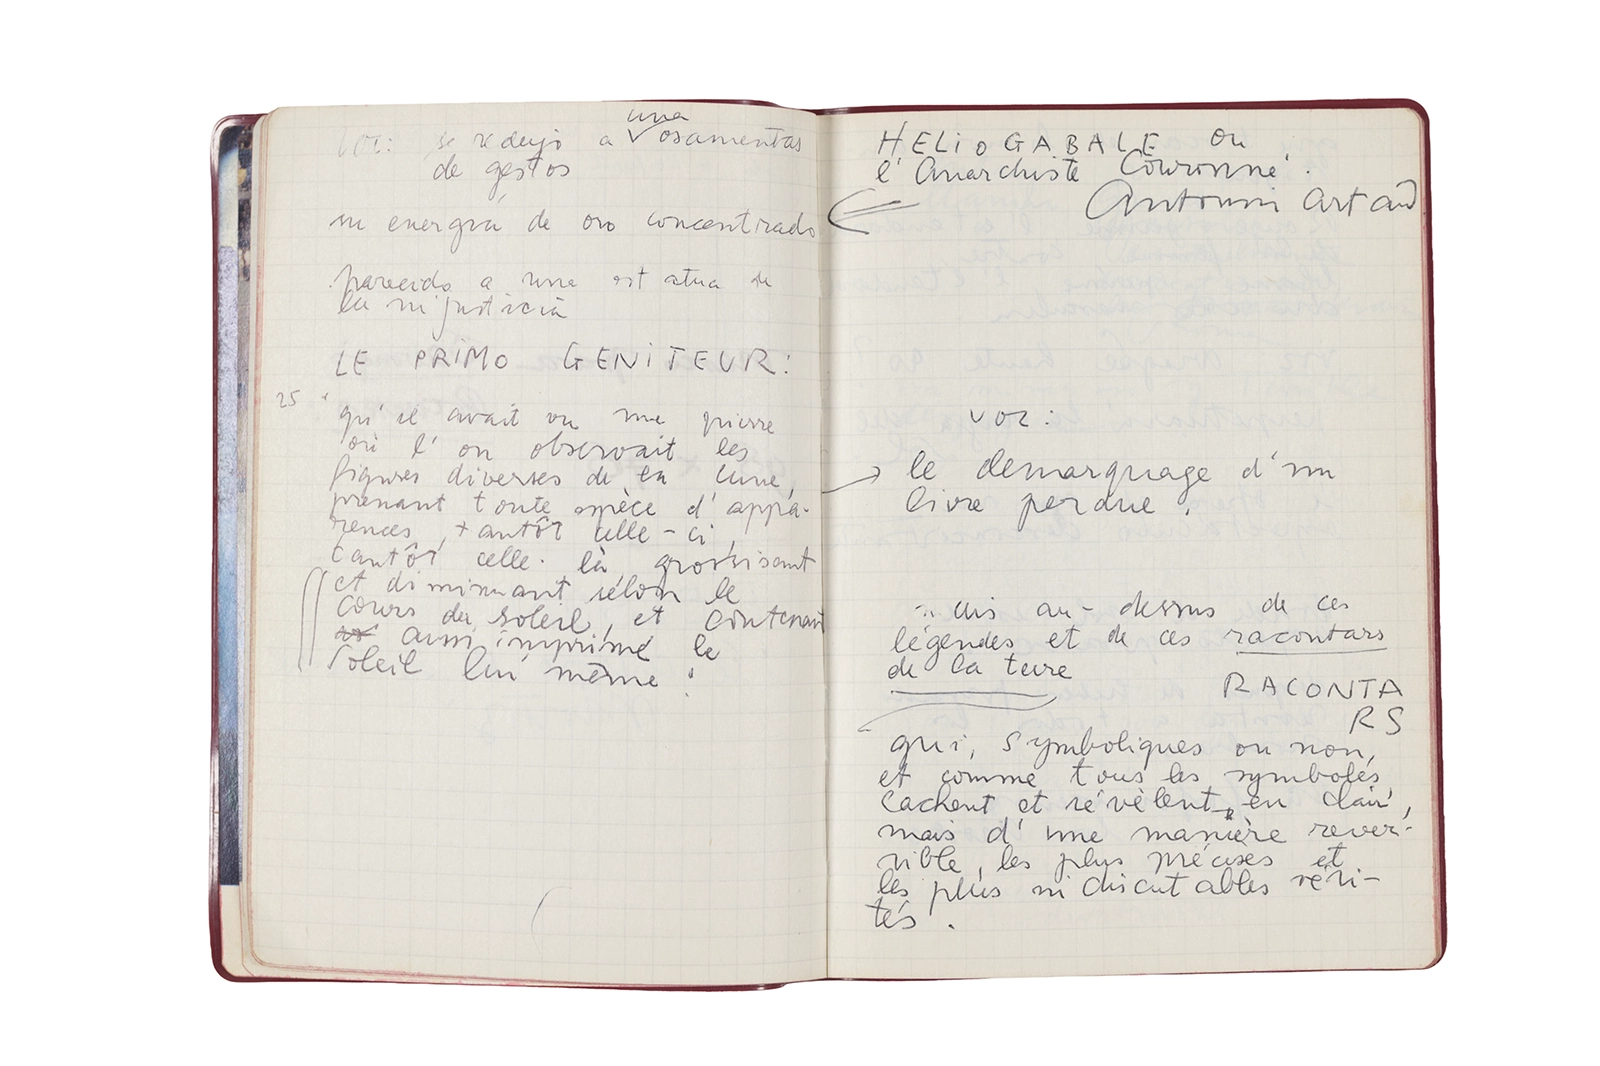 voz: se redujo a una osamentas
de gestos
su energía de oro concentrado
parecido a una estatua de
la injusticia
LE PRIMO GENITEUR:
25 "qu'il avait vu une pierre
où l'on observait les
figures diverses de la lune,
prenant toute espèce d'appa-
rences, tantôt celle-ci,
tantôt celle-là grossisant
et diminuant sélon le
cours du soleil, et contenant
aussi imprimé le
soleil lui même!
HELIOGABALE ou
l'Anarchiste Couronné.
Antonin Artaud
voz:
le demarquage d'un
livre perdue.
au-dessus de ces
légendes et de ces racontars
de la terre
RACONTA
RS
qui, symboliques ou non,
et comme tous les symboles
cachent et révèlent, en clair,
mais d'une manière rever-
sible, les plus précises et
les plus indiscutables véri-
tés.